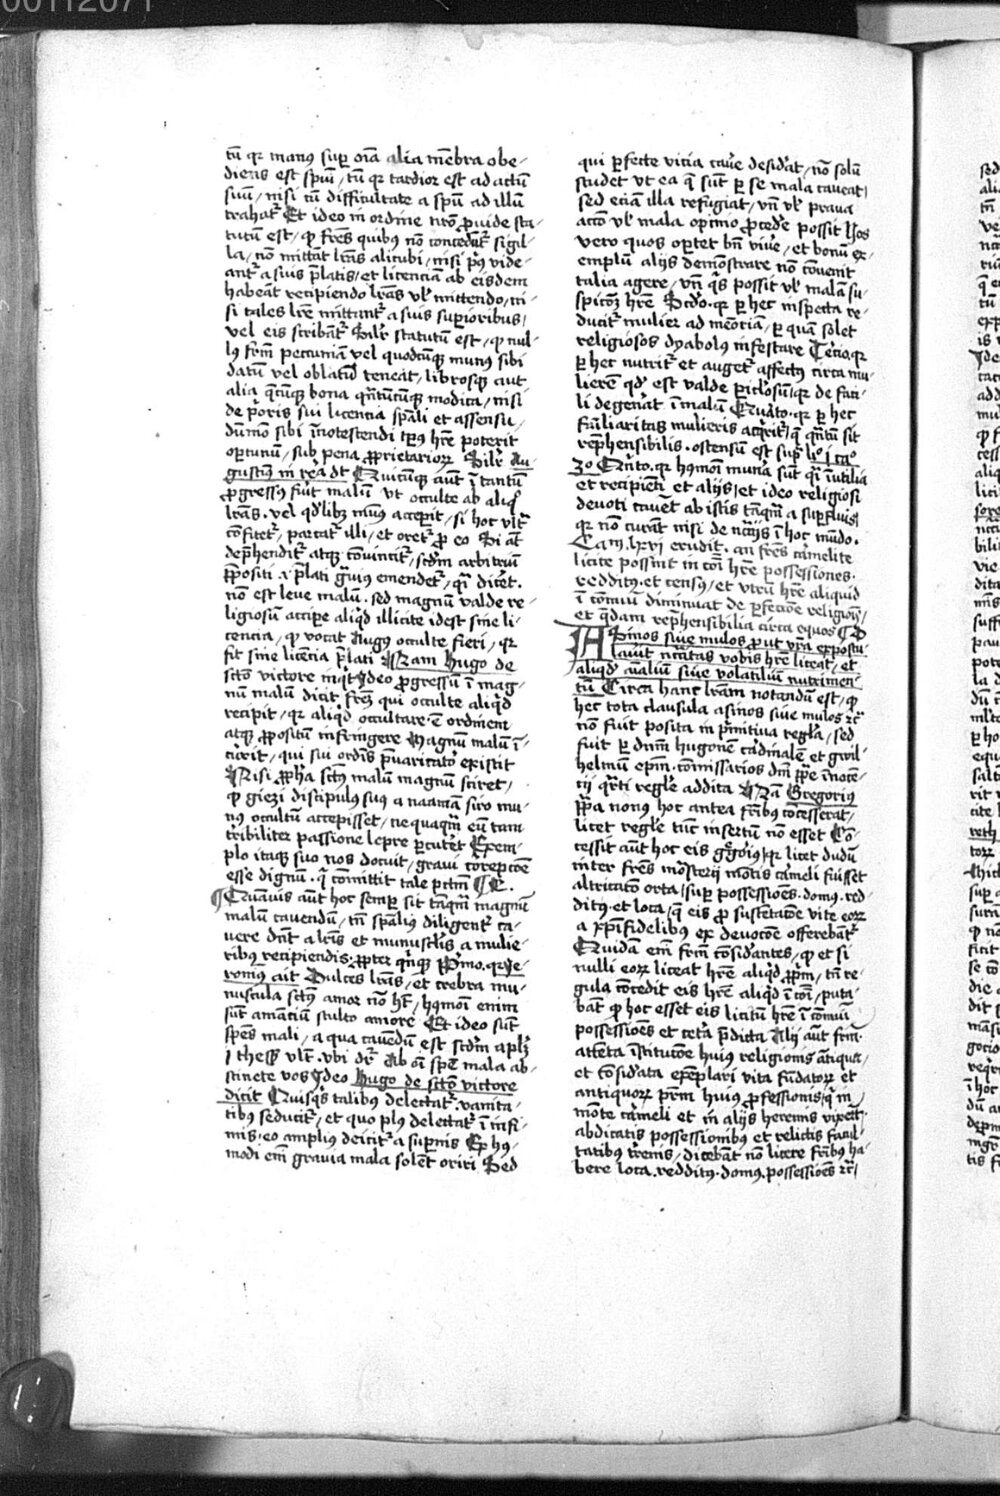 00112071
tū qr manꝰ suꝑ oīa alia mēbra obe-
diens est spūi / tū qr tardior est ad actū
suū / nisi cū difficultate a spū ad illū
trahatʳ Et ideo in ordine nr̄o ꝓuide sta-
tutū est / ꝙ fr̄es quibꝰ nō concedūtʳ sigil-
la / nō mittāt lr̄as alicubi / nisi pꝰ vide-
antʳ a suis p̄latis / et licenciam ab eisdem
habeāt recipiendo lr̄as vl̓ mittendo / ni-
si tales lr̄e mittantʳ a suis suꝑioribus /
vel eis scribātʳ Silr̄ statutū est / ꝙ nul-
lꝰ fr̄m pecuniā vel quodcūqꝫ munꝰ sibi
datū vel oblatū teneat / librosqꝫ aut
alia q̄cūqꝫ bona q̄ntūcūqꝫ modica / nisi
de p̓oris sui licencia sp̄ali et assensu /
dūmō sibi īnotescendi tp̄ꝰ hr̄e poterit
oportunū / sub pena ꝓprietariorꝫ Silr̄ Au-
gustinꝰ in reg̓a dt̄ Quicūqꝫ aut̄ ī tantū
ꝓgressꝰ fuīt malū vt occulte ab aliqͦ
lr̄as . vel qd̓libꝫ munꝰ acceꝑit / si hoc vltʳ
cōfitetʳ / parcat̓ illi / et oretʳ ꝓ eo Si at̄
dep̄henditʳ atqꝫ cōvincitʳ / scd̄m arbitriū
p̄positi l̓ p̄lati grauiꝰ emendetʳ / qī diceret .
nō est leue malū . sed magnū valde re-
ligiosū accipe aliqd̓ illicite idest sine li-
cencia / ꝙ vocat Augꝰ occulte fieri / qr
fit sine licencia p̄lati Nam hugo de
scō victore inqt̓ Ideo ꝓgressū ī mag-
nū malū dicit fr̄em qui occulte aliqd̓
recipit / qr aliqd̓ occultare ē ordinem
atqꝫ ꝓpositū infringere Magnū malū ī-
currit / qui sui ordīs p̄uaricator existit
Nisi ꝓph̄a sctꝰ malū magnū sciret /
ꝙ giezi discipulꝰ suꝰ a naaman siro mu-
nꝰ occultū accepisset / ne quaqm̄ eū tam
terribiliter passione lepre ꝑcuteret Exem-
plo itaqꝫ suo nos docuit / graui correpcōe
esse dignum . q̓ cōmittit tale pctm̄ ¶ C .
¶ Quāuis aut̄ hoc semꝑ sit tāqm̄ magnū
malū cauendū / tn̄ sp̄aliꝰ diligenter ca-
uere dn̄t a lr̄is et munuscl̓is a mulie-
ribꝰ recipiendis . ꝓpter qinqꝫ Pͥmo . qr Je-
ronimꝰ ait Dulces lr̄as / et crebra mu-
nuscula sctꝰ amor nō hꝫ / hꝰmōi enim
sūt amāciū stulto amore Et ideo sūt
spēs mali / a qua cauēdū est scd̄m apl̄ꝫ
j thess̓ vlt̓ . vbi dr̄ Ab oī spē mala ab-
stinete vos Ideo hugo de sctō victore
dicit Quisqs talibꝰ delectatʳ . vanita-
tibꝰ seducitʳ / et quo plꝰ delectatʳ ī infi-
mis / eo ampliꝰ deicitʳ a suꝑnis Ex hꝰ-
modi em̄ grauia mala solēt oriri Sed
qui ꝑfecte vicia cauēe desiderat / nō solū
studet vt ea q̄ sūt ꝑ se mala caueat /
sed eciā illa refugiat / vn̄ vl̓ praua
actō vl̓ mala opinio ꝓcedēe possit hos
vero quos optet bn̄ viue / et bonū ex-
emplū alijs demōstrare nō conuenit
talia agere / vn̄ qͥs possit vl̓ malā su-
spicōꝫ hr̄e Scd̄o . qr ꝑ hec inspecta re-
ducitʳ mulier ad memoriā / ꝑ quā solet
religiosos dyabolꝰ infestare Tercio . qr
ꝑ hec nutritʳ et augetʳ affectꝰ circa mu-
lierē qd̓ est valde ꝑiclosū / qr de faci-
li degenerat ī malū Quarto . qr ꝑ hec
familiaritas mulieris acqͥritʳ / q̄ qntū sit
rep̄hensibilis . ostensū est suꝑ liͦ j caͦ
3ͦ Quīto . qr hꝰmōi munā sunt qͥ inutilia
et recipiēti et alijs / et ideo religiosi
deuoti cauet ab istis tāqm̄ a suꝑfluis /
qr nō curāt nisi de ncc̄ijs ī hoc mūdo .
Cam . lxvi erudit . an fr̄es carmelite
licite possint in cōi hr̄e possessiones .
redditꝰ . et censꝰ / et vtrū hr̄e aliquid
ī cōmuni diminuat de ꝑfectōe religiōis /
et qdam rep̄hensibilia circa equos ¶ D
Asinos siue mulos ꝓut vr̄a expostu-
lauīt nccītas vobis hr̄e liceat / et
aliqd̓ aīaliū siue volatiliū nutrimen-
tū Circa hanc lr̄am notandū est / ꝙ
hec tota clausula asinos siue mulos ⁊c̄
nō fuit posita in pͥmitiua regl̓a / sed
fuit ꝑ dn̄m hugonē cardinalē et guil-
helmū ep̄m . cōmissarios dn̄i pp̄e īnocē-
cij qͬti regl̓e addita Nā Gregoriꝰ
pp̄a nonus hoc antea fr̄ibꝰ cōcesserat /
licet regl̓e tūc insertū nō esset Cō-
cessit aut̄ hoc eis g̓goriꝰ / qr licet dudū
inter fr̄es monsterij mōtis carmeli fuisset
altricatō orta / suꝑ possessiōes . domꝰ . red-
ditꝰ . et loca / q̄ eis ꝓ sustētacōe vite eorꝫ
a xp̄ifidelibꝰ ex deuocōe offerebant
Quidam em̄ fr̄m cōsiderātes / ꝙ et si
nulli eorꝫ liceat hr̄e aliqd̓ ꝓpm̄ / tn̄ re-
gula cōcedit eis hr̄e aliqd̓ ī cōi / puta-
bāt ꝙ hoc esset eis licitū hr̄e ī cōmuni
possessiōes et cetā p̄dicta Alij aut̄ fr̄m .
attēta īstitucōe huiꝰ religionis ātiqua /
et cōsiderata exēplari vita fūdatorꝫ et
antiquorꝫ pr̄m huiꝰ ꝓfessionis / q̓ in
mōte carmeli et in alijs heremis vixerūt .
abdicatis possessionibꝰ et relictis facul-
tatibꝰ terrenis / dicebāt nō licere fr̄ibꝰ ha-
bere loca . redditꝰ . domꝰ . possessiōes ⁊c̄ /